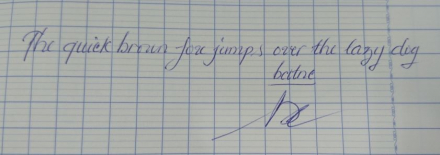 The quick brown foxe jumps over the lazy dog